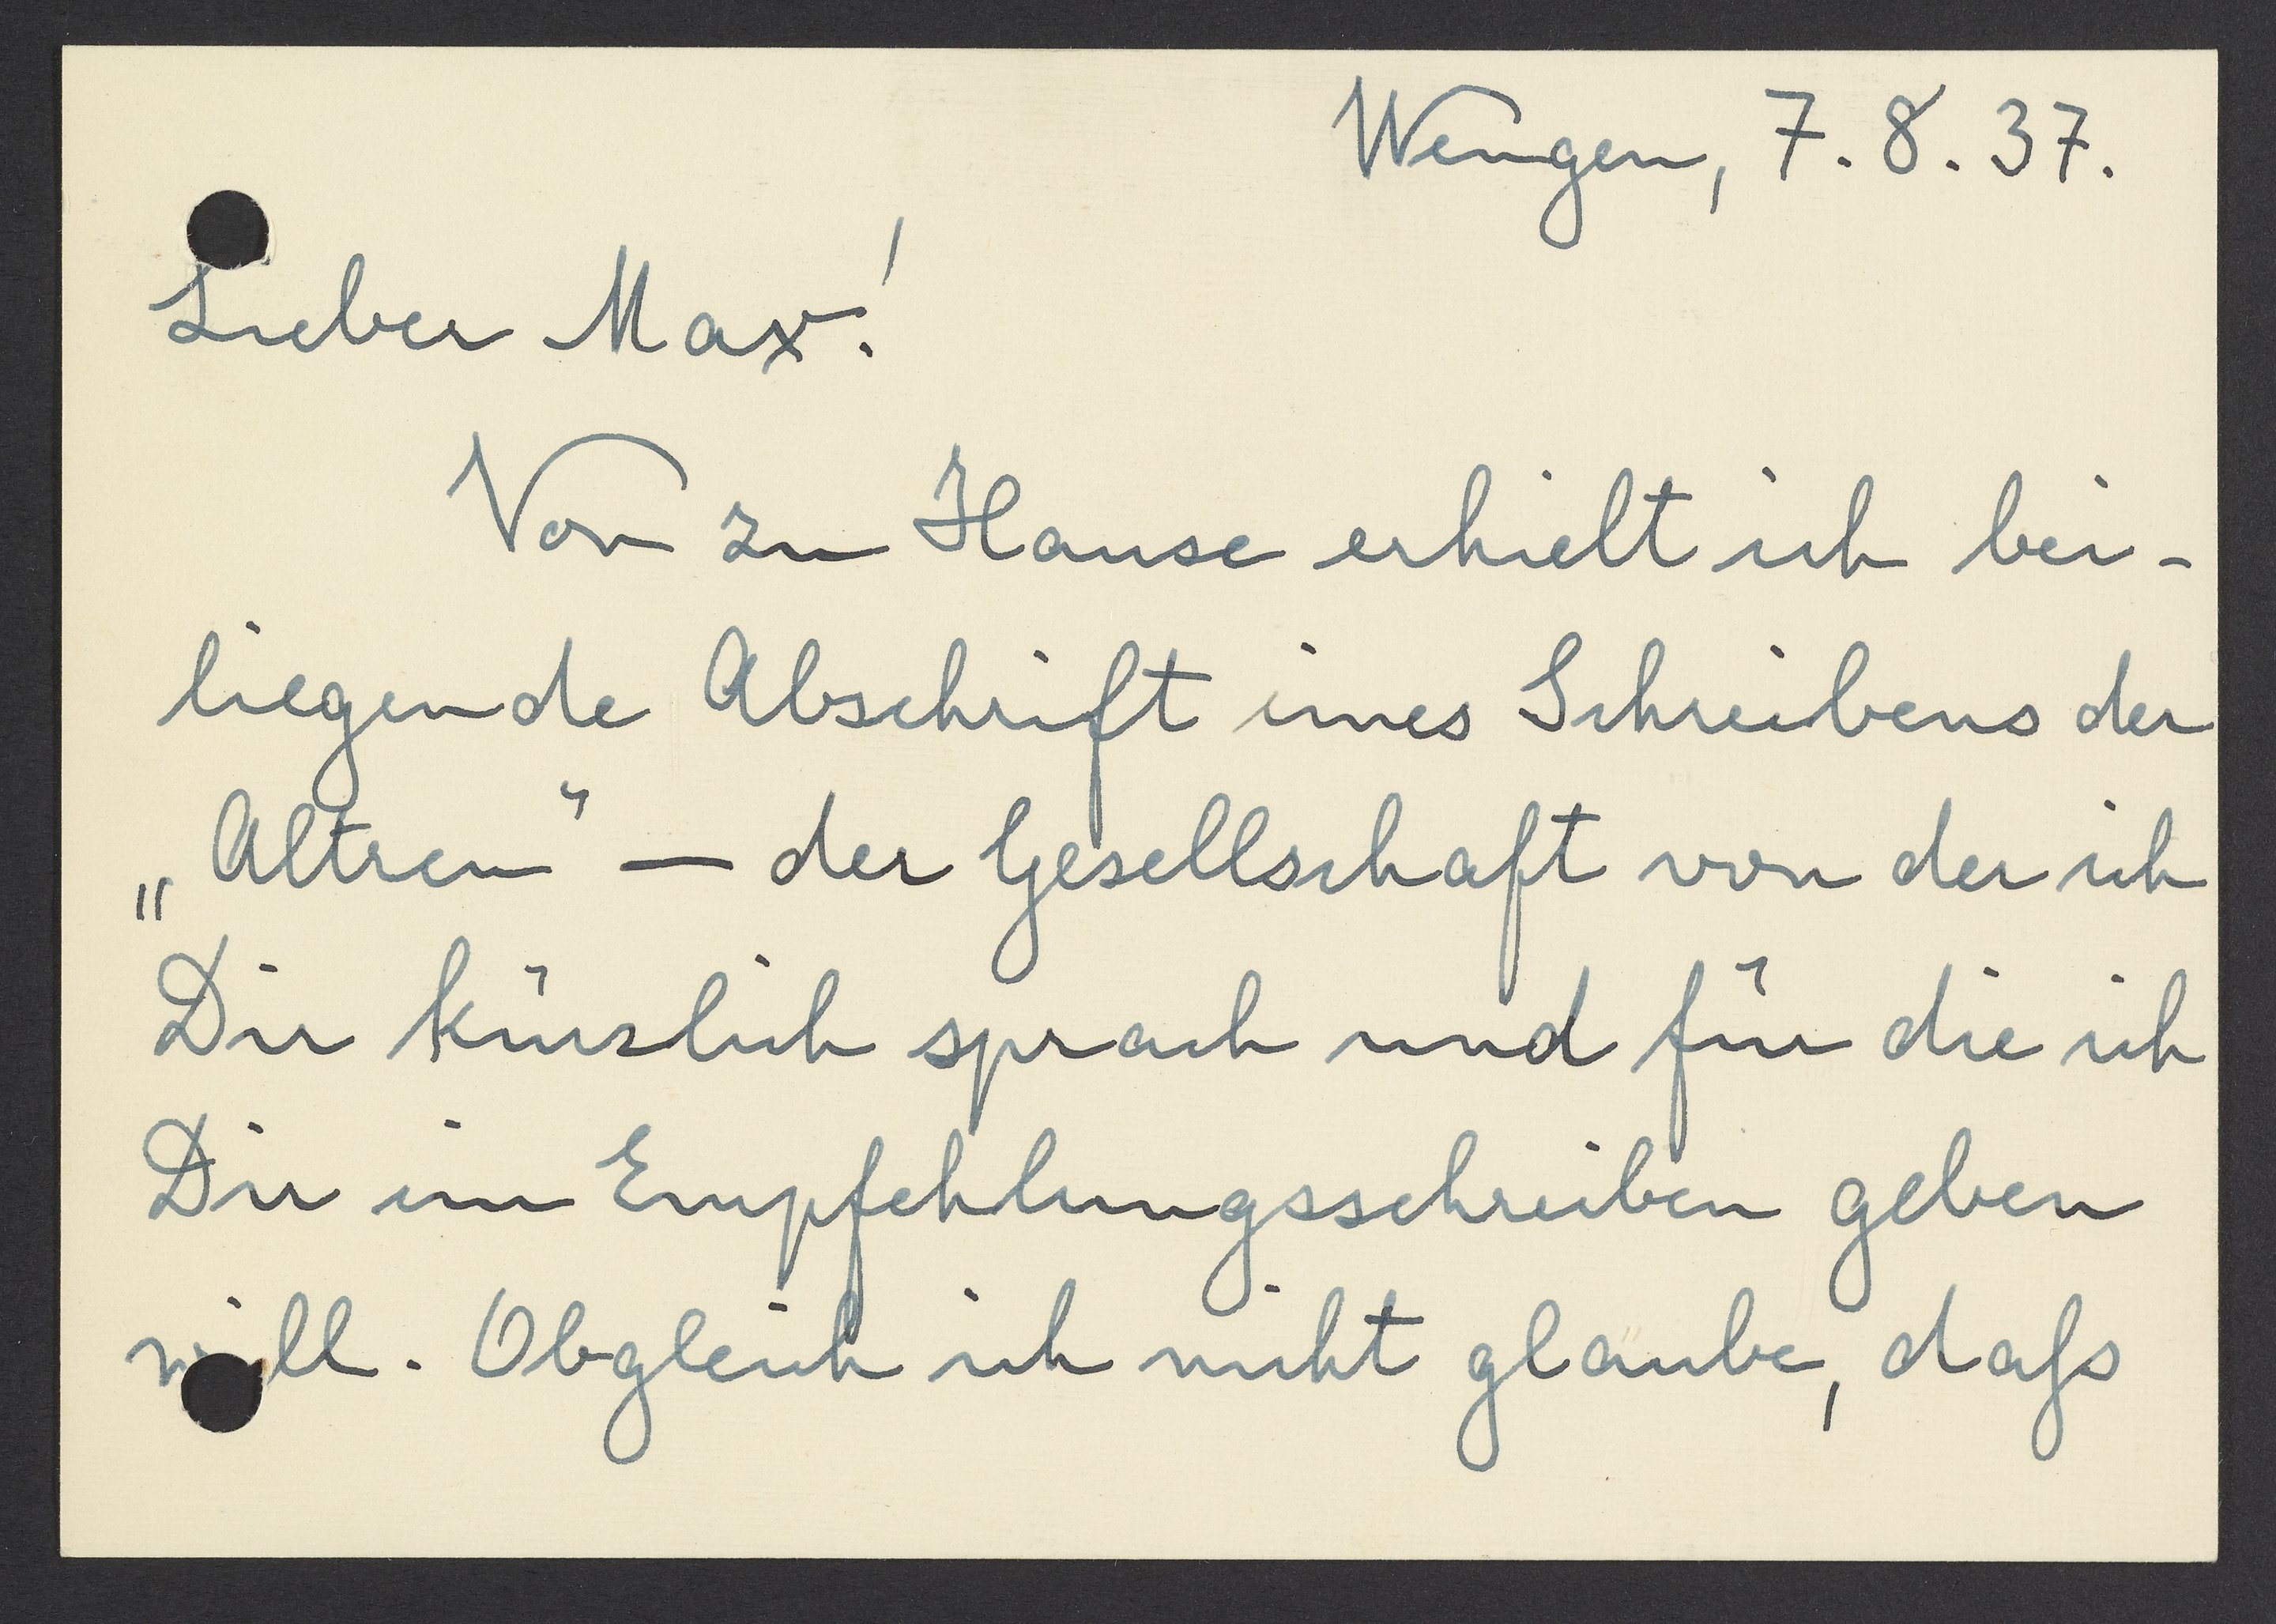 Wengen, 7. 8. 37.
Lieber Max!
Von zu Hause erhielt ich bei-
liegende Abschrift eines Schreibens der
„Altreu“ — der Gesellschaft von der ich
Dir kürzlich sprach und für die ich
Dir ein Empfehlungsschreiben geben
will. Obgleich ich nicht glaube, daß